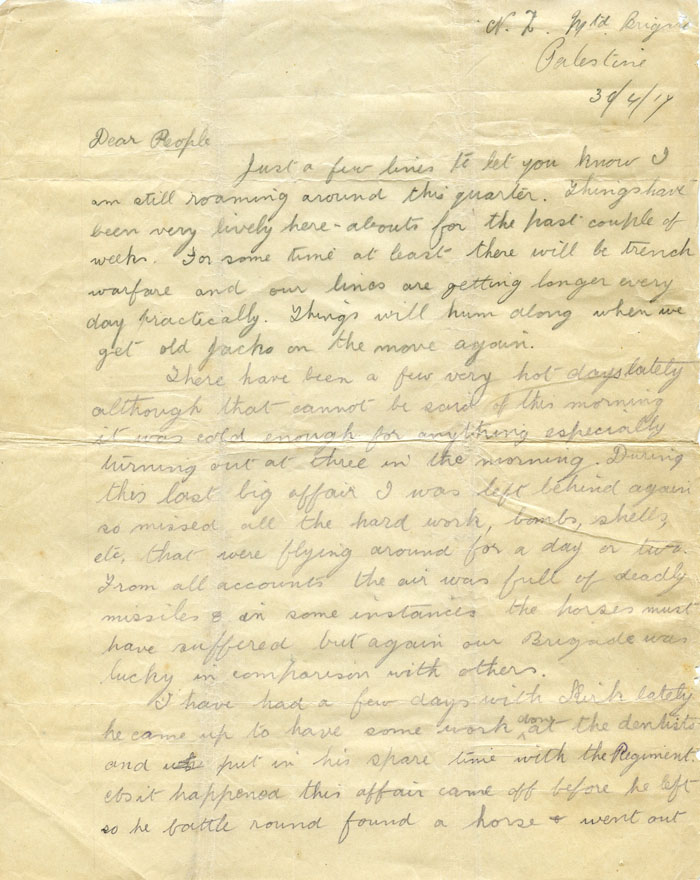 N. Z. Mtd Brigade
Palestine
30/4/17
Dear People
Just a few lines to let you know I
am still roaming around this quarter. Things have
been very lively here-abouts for the past couple of
weeks. For some time at least there will be trench
warfare and our lines are getting longer every
day practically. Things will hum along when we
get old Jacko on the move again.
There have been a few very hot days lately
although that cannot be said of this morning
it was cold enough for anything especially
turning out at three in the morning. During
this last big affair I was left behind again
so missed all the hard work, bombs, shells,
etc, that were flying around for a day or two.
From all accounts the air was full of deadly
missiles & in some instances the horses must
have suffered but again our Brigade was
lucky in comparison with others.
I have had a few days with Kirk lately
he came up to have some work done at the dentists
and put in his spare time with the Regiment.
As it happened this affair came off before he left
so he battle round found a horse & went out